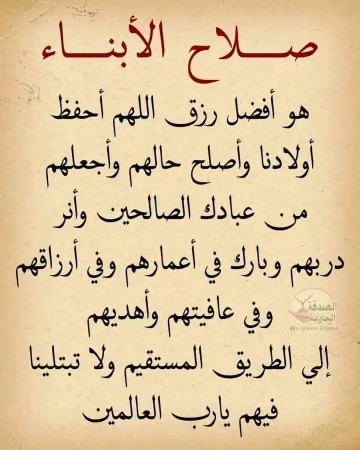 صلاح الأبناء
هو أفضل رزق اللهم أحفظ
أولادنا وأصلح حالهم وأجعلهم
من عبادك الصالحين وأنر
دربهم وبارك في أعمارهم وفي أرزاقهم
وفي عافيتهم وأهديهم
إلي الطريق المستقيم ولا تبتلينا
فيهم يارب العالمين
الصدقة
الجارية